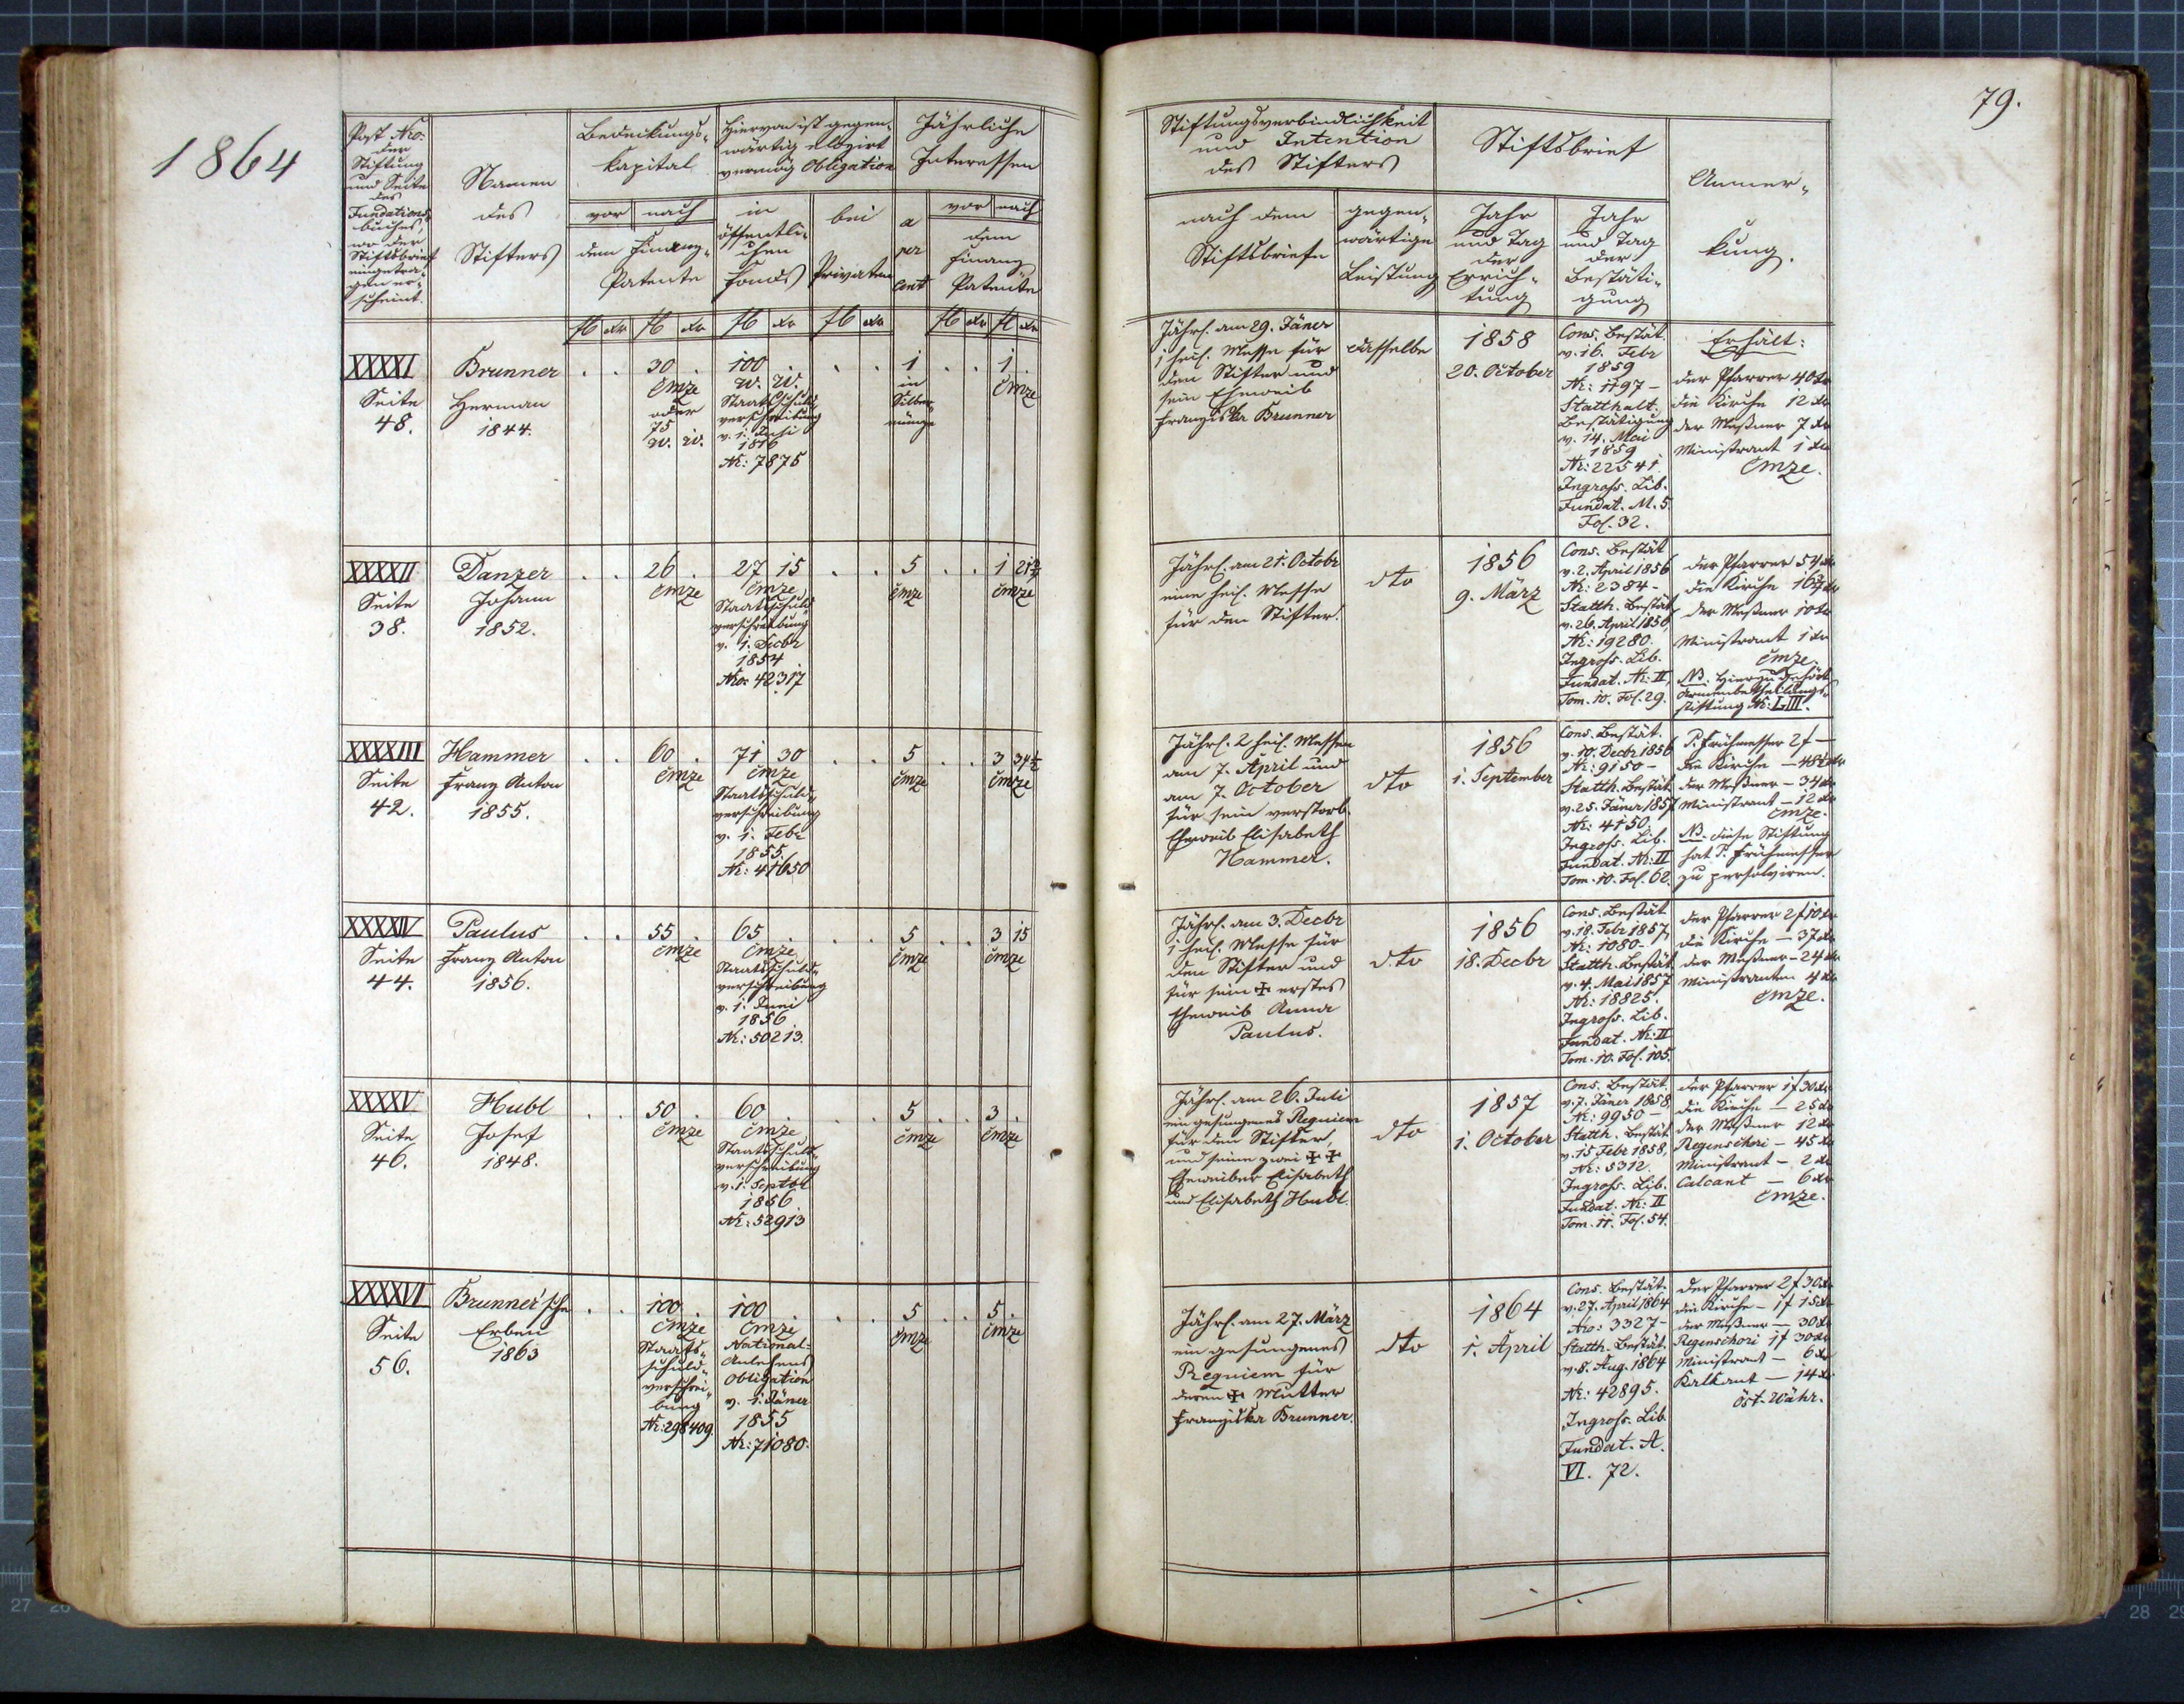 1864
Post Nro.
der
Stiftung
und Seite
des
Fundations-
buches,
wo der
Stiftsbrief
eingetra-
gen er-
scheint.
Namen
des
Stifters
Bedeckungs-
Kapital
vor nach
dem Finanz-
Patente
Hiervon ist gegen-
wärtig elozirt
vermög Obligation
in
öffentli-
chen
Fonds
bei
Privaten
Jährliche
Interessen
a
per
cent
vor nach
dem
Finanz
Patente
fl xr fl xr fl xr fl xr fl xr fl xr
XXXXI
Seite
48.
Brunner
Herman
1844.
. . 30 .
Cmze
oder
75
W. W.
100 .
W. W.
Staatsschuld-
verschreibung
v. 1. Juli
1816
Nr: 7875
. . 1
in
Silber-
münze
. . 1 .
Cmze
XXXXII
Seite
38.
Danzer
Johann
1852.
. . 26 .
Cmze
27 15
Cmze
Staatsschuld-
verschreibung
v. 1. Decbr
1854
Nro: 42317
. . 5
Cmze
. . 1 21¾
Cmze
XXXXIII
Seite
42.
Hammer
Franz Anton
1855.
. . 60 .
Cmze
71 30
Cmze
Staatsschuld-
verschreibung
v. 1. Febr
1855.
Nr: 41650
. . 5
Cmze
. . 3 34½
Cmze
XXXXIV
Seite
44.
Paulus
Franz Anton
1856.
. . 55 .
Cmze
65 .
Cmze
Staatsschuld-
verschreibung
v. 1. Juni
1856
Nr: 50213.
. . 5
Cmze
. . 3 15
Cmze
XXXXV
Seite
46.
Hubl
Josef
1848.
. . 50 .
Cmze
60 .
Cmze
Staatsschuld-
verschreibung
v. 1. Septbr
1856
Nr: 52913
. . 5
Cmze
. . 3 .
Cmze
XXXXVI
Seite
56.
Brunner'sche
Erben
1863
. . 100 .
Cmze
Staats-
schuld-
verschrei-
bung
Nr: 298409.
100 .
Cmze
National-
Anlehens
Obligation
v. 1. Jäner
1855
Nr: 71080.
. . 5
Cmze
. . 5 .
Cmze
79.
Stiftungsverbindlichkeit
und Intention
des Stifters
nach dem
Stiftsbriefe
gegen-
wärtige
Leistung
Stiftsbrief
Jahr
und Tag
der
Errich-
tung
Jahr
und Tag
der
Bestäti-
gung
Anmer-
kung.
Jährl. am 29. Jäner
1 heil. Messe für
den Stifter und
sein Eheweib
Franziska Brunner
dasselbe
1858
20. October
Cons. Bestät.
v. 16. Febr
1859
Nr: 1197 –
Statthalt.
Bestätigung
v. 14. Mai
1859
Nr: 22541.
Ingross. Lib.
Fundat. M. 5.
Fol. 32.
Erhält:
der Pfarrer 40 xr
die Kirche 12 xr
der Meßner 7 xr
Ministrant 1 xr
Cmze.
Jährl. am 21. Octobr
eine heil. Messe
für den Stifter.
dto
1856
9. März
Cons. Bestät
v. 2. April 1856
Nr: 2384 –
Statth. Bestät
v. 26. April 1856,
Nr: 19280.
Ingross. Lib.
Fundat. Nr: II,
Tom. 10. Fol. 29.
der Pfarrer 54 xr
die Kirche 16¾ xr
der Meßner 10 xr
Ministrant 1 xr
Cmze.
NB. Hiezu gehört
Armenbetheilungs-
stiftung Nr: LIII.
Jährl. 2 heil. Messen
am 7. April und
am 7. October
für sein verstorb.
Eheweib Elisabeth
Hammer.
dto
1856
1. September
Cons. Bestät.
v. 10. Decbr 1856
Nr: 9150 –
Statth. Bestät
v. 25. Jäner 1857
Nr: 4150.
Ingross. Lib.
Fundat. Nr: II
Tom. 10. Fol. 62.
P. Frühmesser 2 f –
die Kirche – 48½ xr
der Meßner – 34 xr
Ministrant – 12 xr
Cmze.
NB. diese Stiftung
hat P. Frühmesser
zu persolviren.
Jährl. am 3. Decbr
1 heil. Messe für
den Stifter und
für sein ✠ erstes
Eheweib Anna
Paulus.
dto
1856
18. Decbr
Cons. Bestät
v. 18. Febr 1857,
Nr: 1080 –
Statth. Bestät
v. 4. Mai 1857
Nr: 18825.
Ingross. Lib.
Fundat. Nr: II
Tom. 10. Fol. 105.
der Pfarrer 2 f 10 xr
die Kirche – 37 xr
der Meßner – 24 xr
Ministranten 4 xr
Cmze.
Jährl. am 26. Juli
ein gesungenes Requiem
für den Stifter,
und seine zwei ✠ ✠
Eheweiber Elisabeth
und Elisabeth Hubl.
dto
1857
1. October
Cons. Bestät.
v. 7. Jäner 1858,
Nr: 9950 –
Statth. Bestät
v. 15 Febr 1858,
Nr: 5312.
Ingross. Lib.
Fundat. Nr: II
Tom. 11. Fol. 54.
der Pfarrer 1 f 30 xr
die Kirche – 25 xr
der Meßner 12 xr
Regenschori – 45 xr
Ministrant – 2 xr
Calcant – 6 xr
Cmze.
Jährl. am 27. März
ein gesungenes
Requiem für
deren ✠ Mutter
Franziska Brunner.
dto
1864
1. April
Cons. Bestät.
v. 27. April 1864
Nro: 3327 –
Statth. Bestät.
v. 8. Aug. 1864
Nr: 42895.
Ingross. Lib.
Fundat. A.
VI. 72.
der Pfarrer 2 f 30 xr
die Kirche – 1 f 15 xr
der Meßner – 30 xr
Regenschori 1 f 30 xr
Ministrant – 6 xr
Kalkant – 14 xr
öst. Währ.
27
28